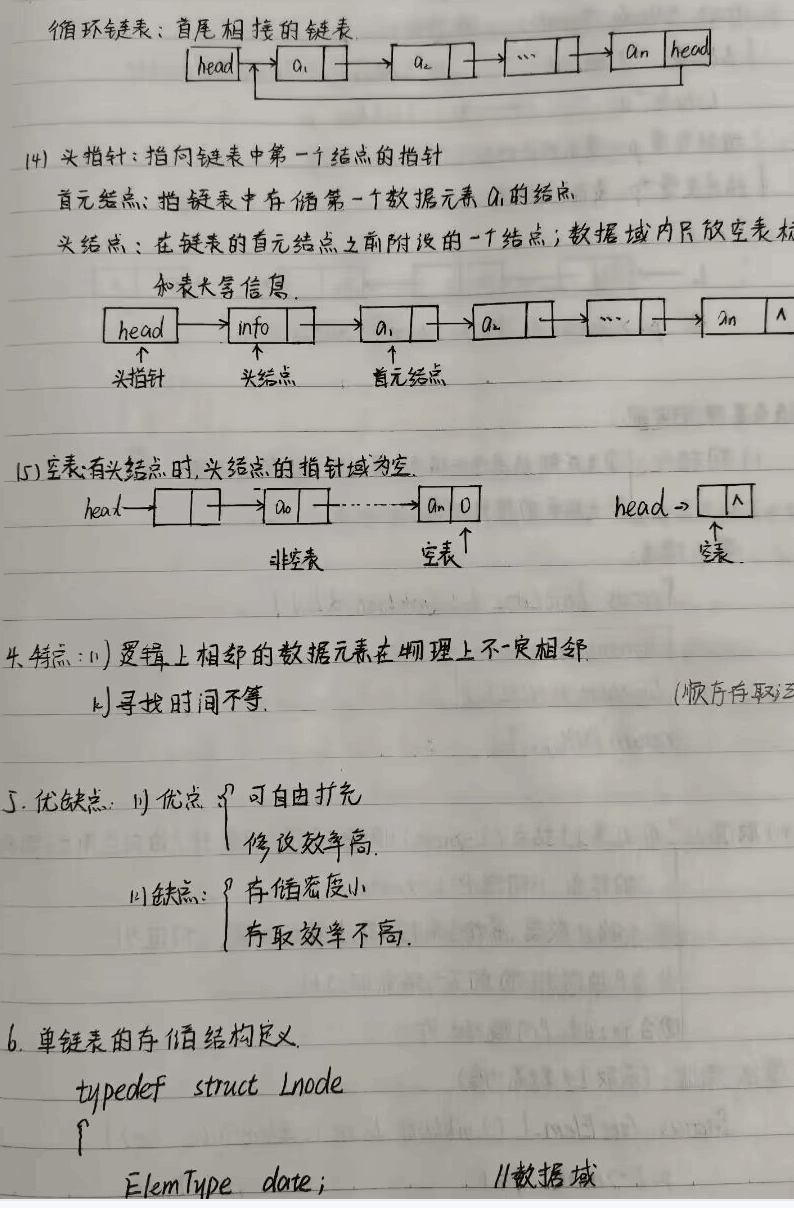 循环链表：首尾相接的链表.
head a₁ a₂ ... an head
(4) 头指针：指向链表中第一个结点的指针
首元结点：指链表中存储第一个数据元素a₁的结点
头结点：在链表的首元结点之前附设的一个结点；数据域内只放空表标
和表长等信息.
head info a₁ a₂ ... an ∧
头指针 头结点 首元结点
(5) 空表：有头结点时,头结点的指针域为空.
head a₀ an 0 head → ∧
非空表 空表 空表.
4. 特点：(1) 逻辑上相邻的数据元素在物理上不一定相邻.
(2) 寻找时间不等. (顺序存取法
5. 优缺点. (1) 优点 { 可自由扩充
修改效率高.
(2) 缺点：{ 存储密度小
存取效率不高.
6. 单链表的存储结构定义.
typedef struct Lnode
{
ElemType date; //数据域